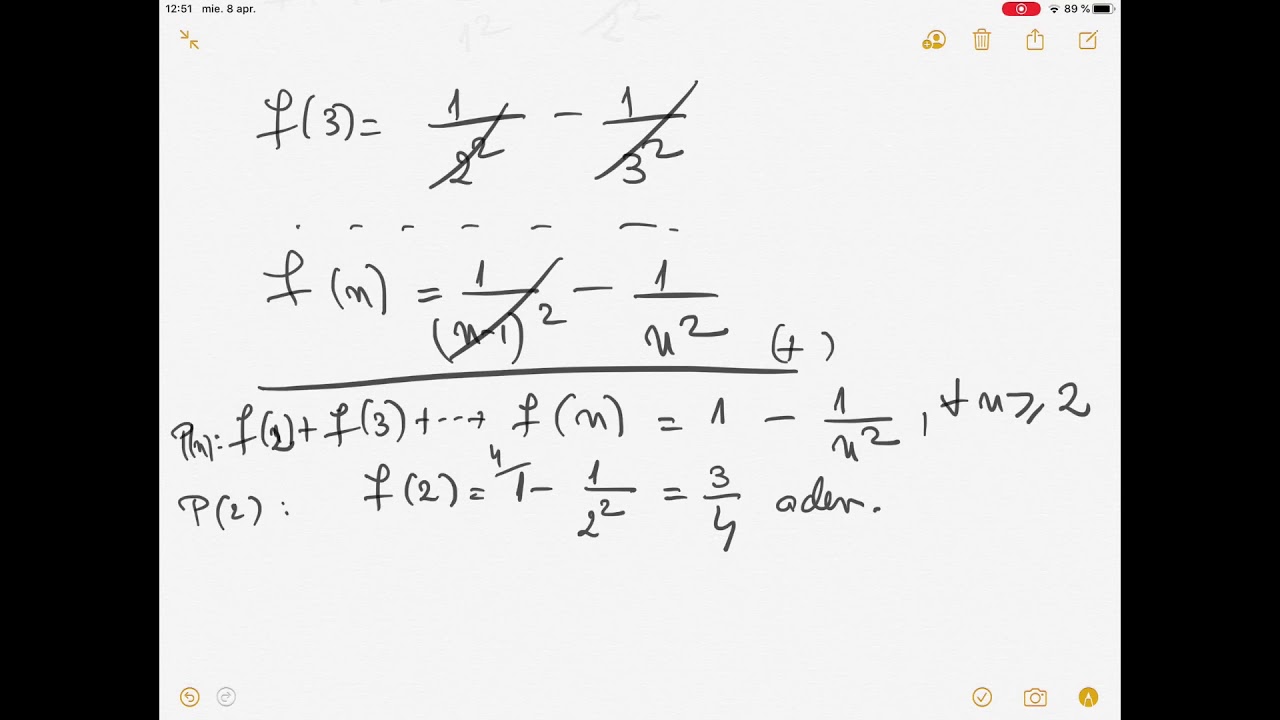 12:51 mie. 8 apr. 89 %
1² 2²
f(3) = 1/2² - 1/3²
. - - - - - .
f(n) = 1/(n-1)² - 1/n² (+)
P(n): f(2) + f(3) + ... + f(n) = 1 - 1/n², ∀ n ≥ 2
P(2): f(2) = ⁴⁄1 - 1/2² = 3/4 adev.